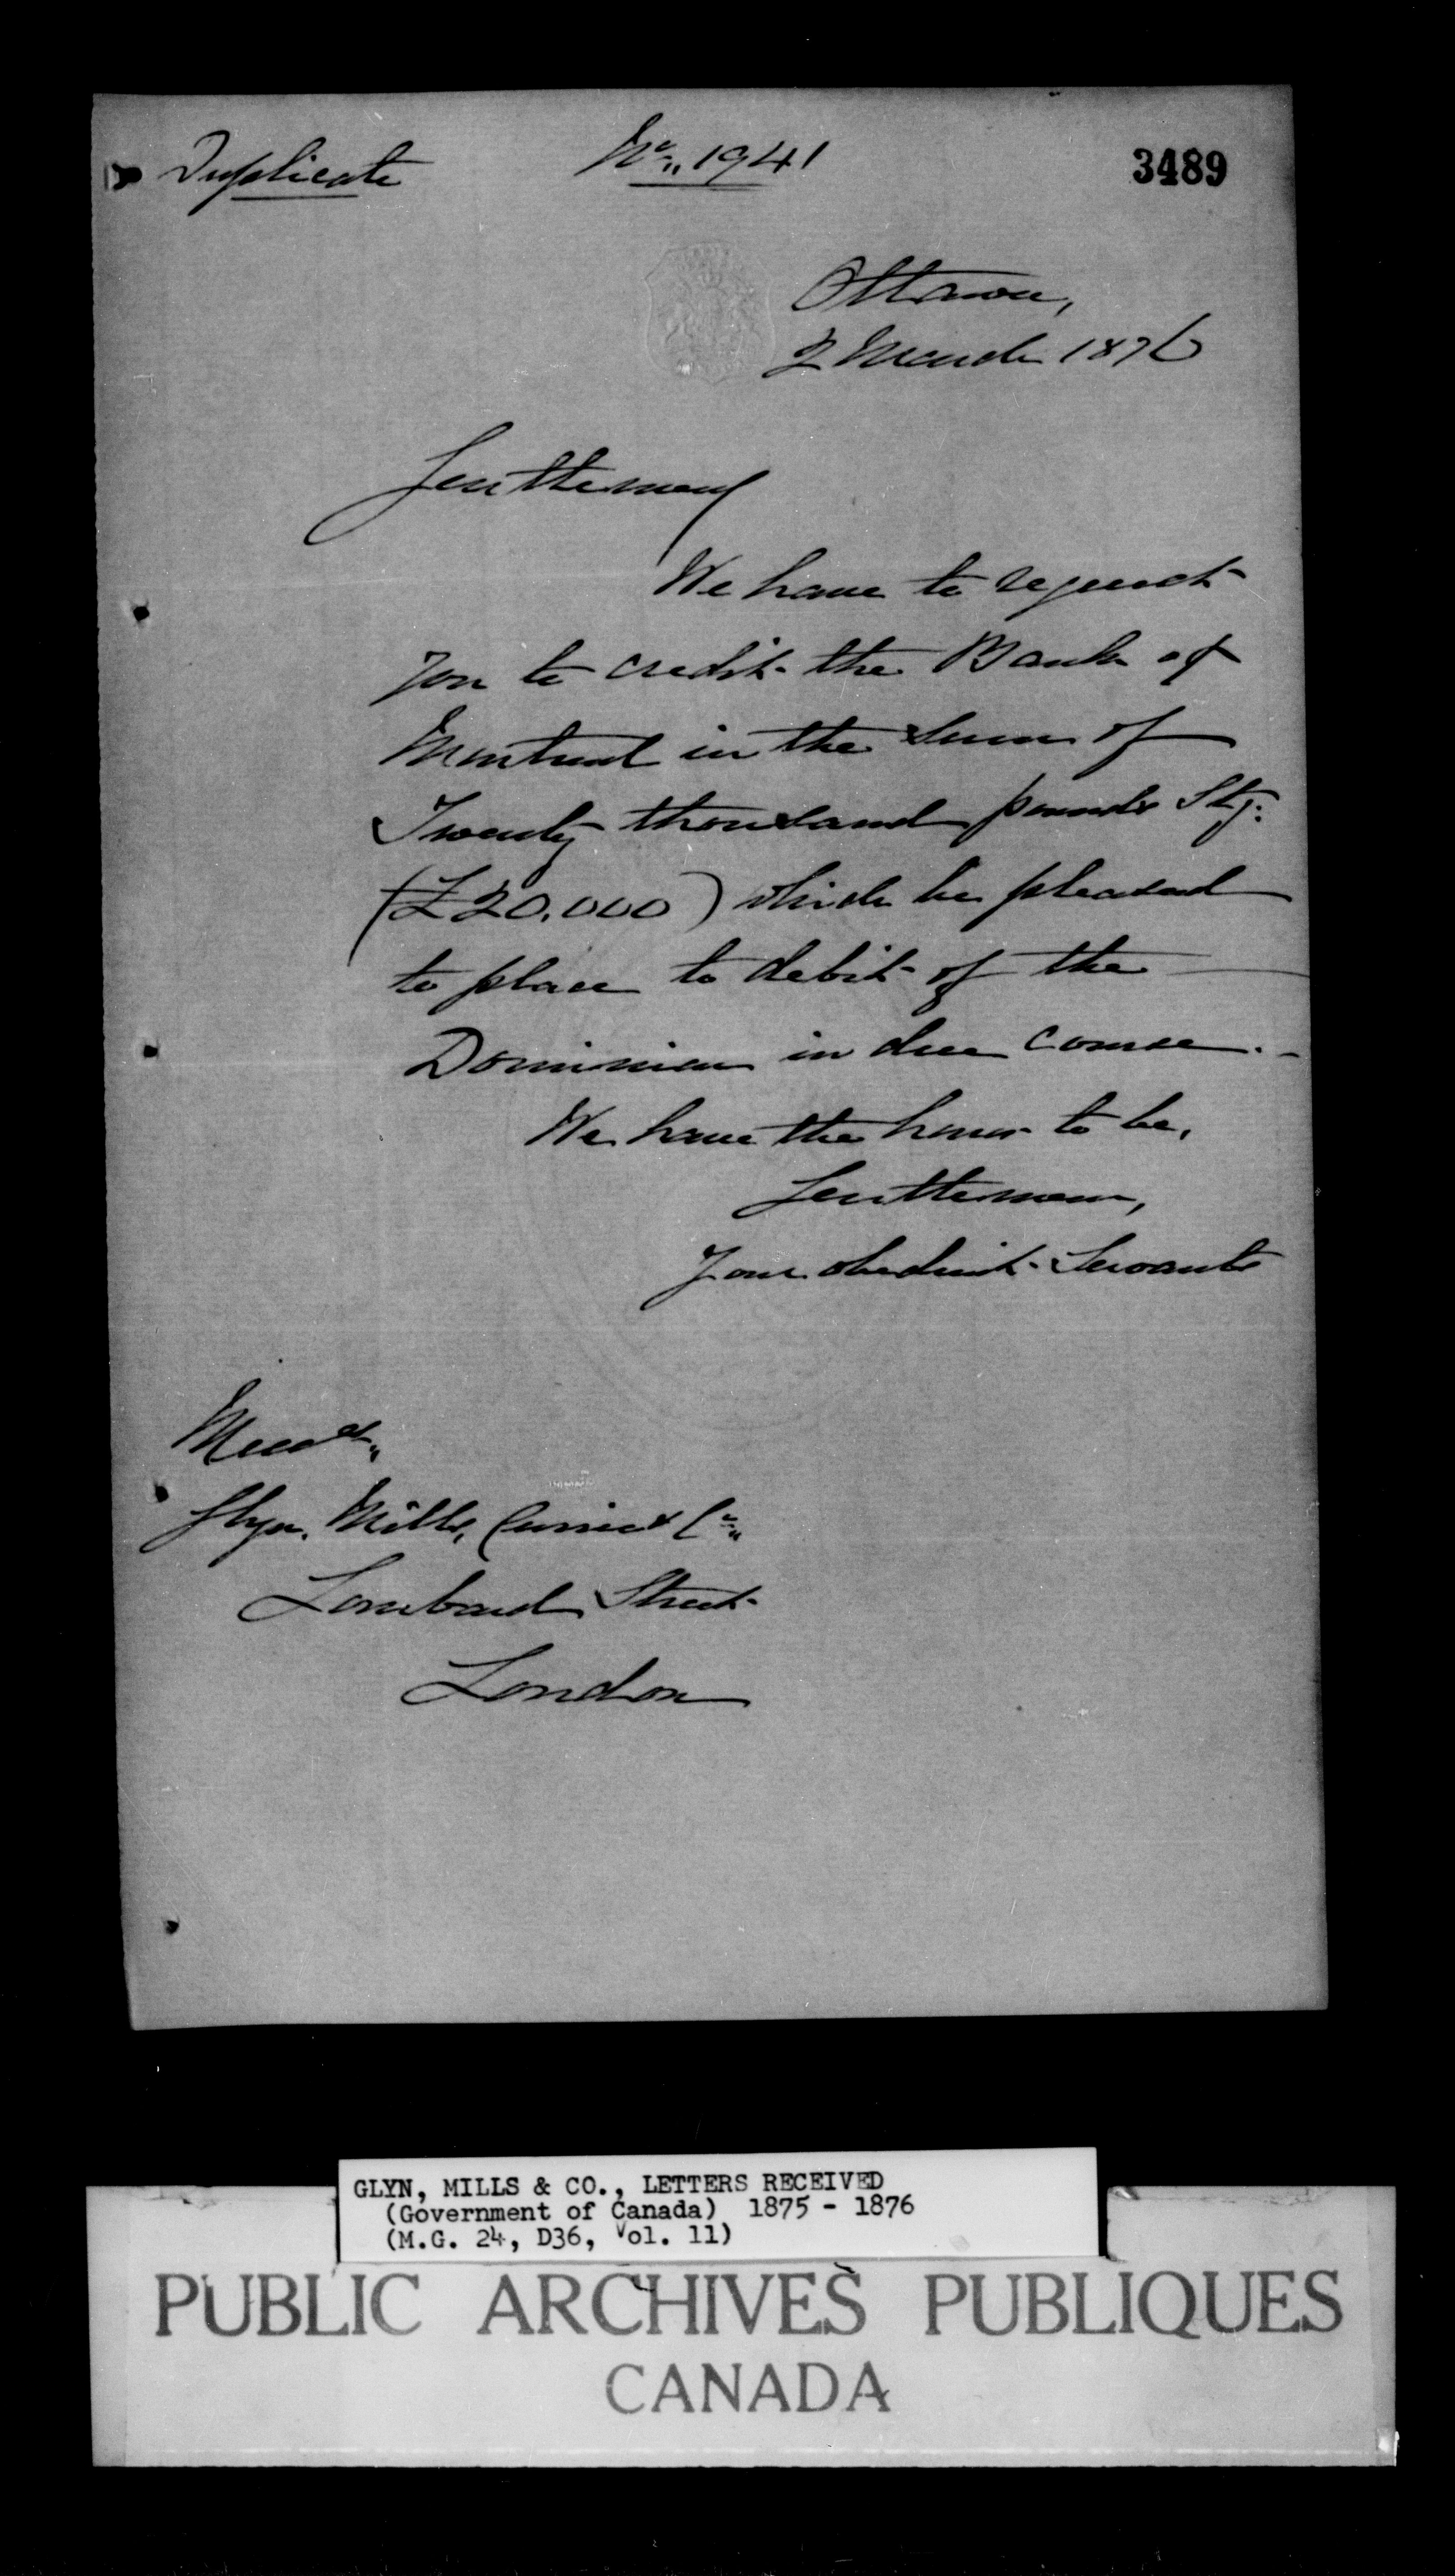 Duplicate
No. 1941
3489
Ottawa,
2 March 1876
Gentlemen
We have to request
you to credit the Bank of
Montreal in the sum of
Twenty thousand pounds Stg.
(£20,000) which be pleased
to place to debit of the
Dominion in due course.
We have the honor to be,
Gentlemen,
Your obedient Servants
Messrs.
Glyn, Mills, Currie & Co.
Lombard Street
London
GLYN, MILLS & CO., LETTERS RECEIVED
(Government of Canada) 1875 - 1876
(M.G. 24, D36, Vol. 11)
PUBLIC ARCHIVES PUBLIQUES
CANADA